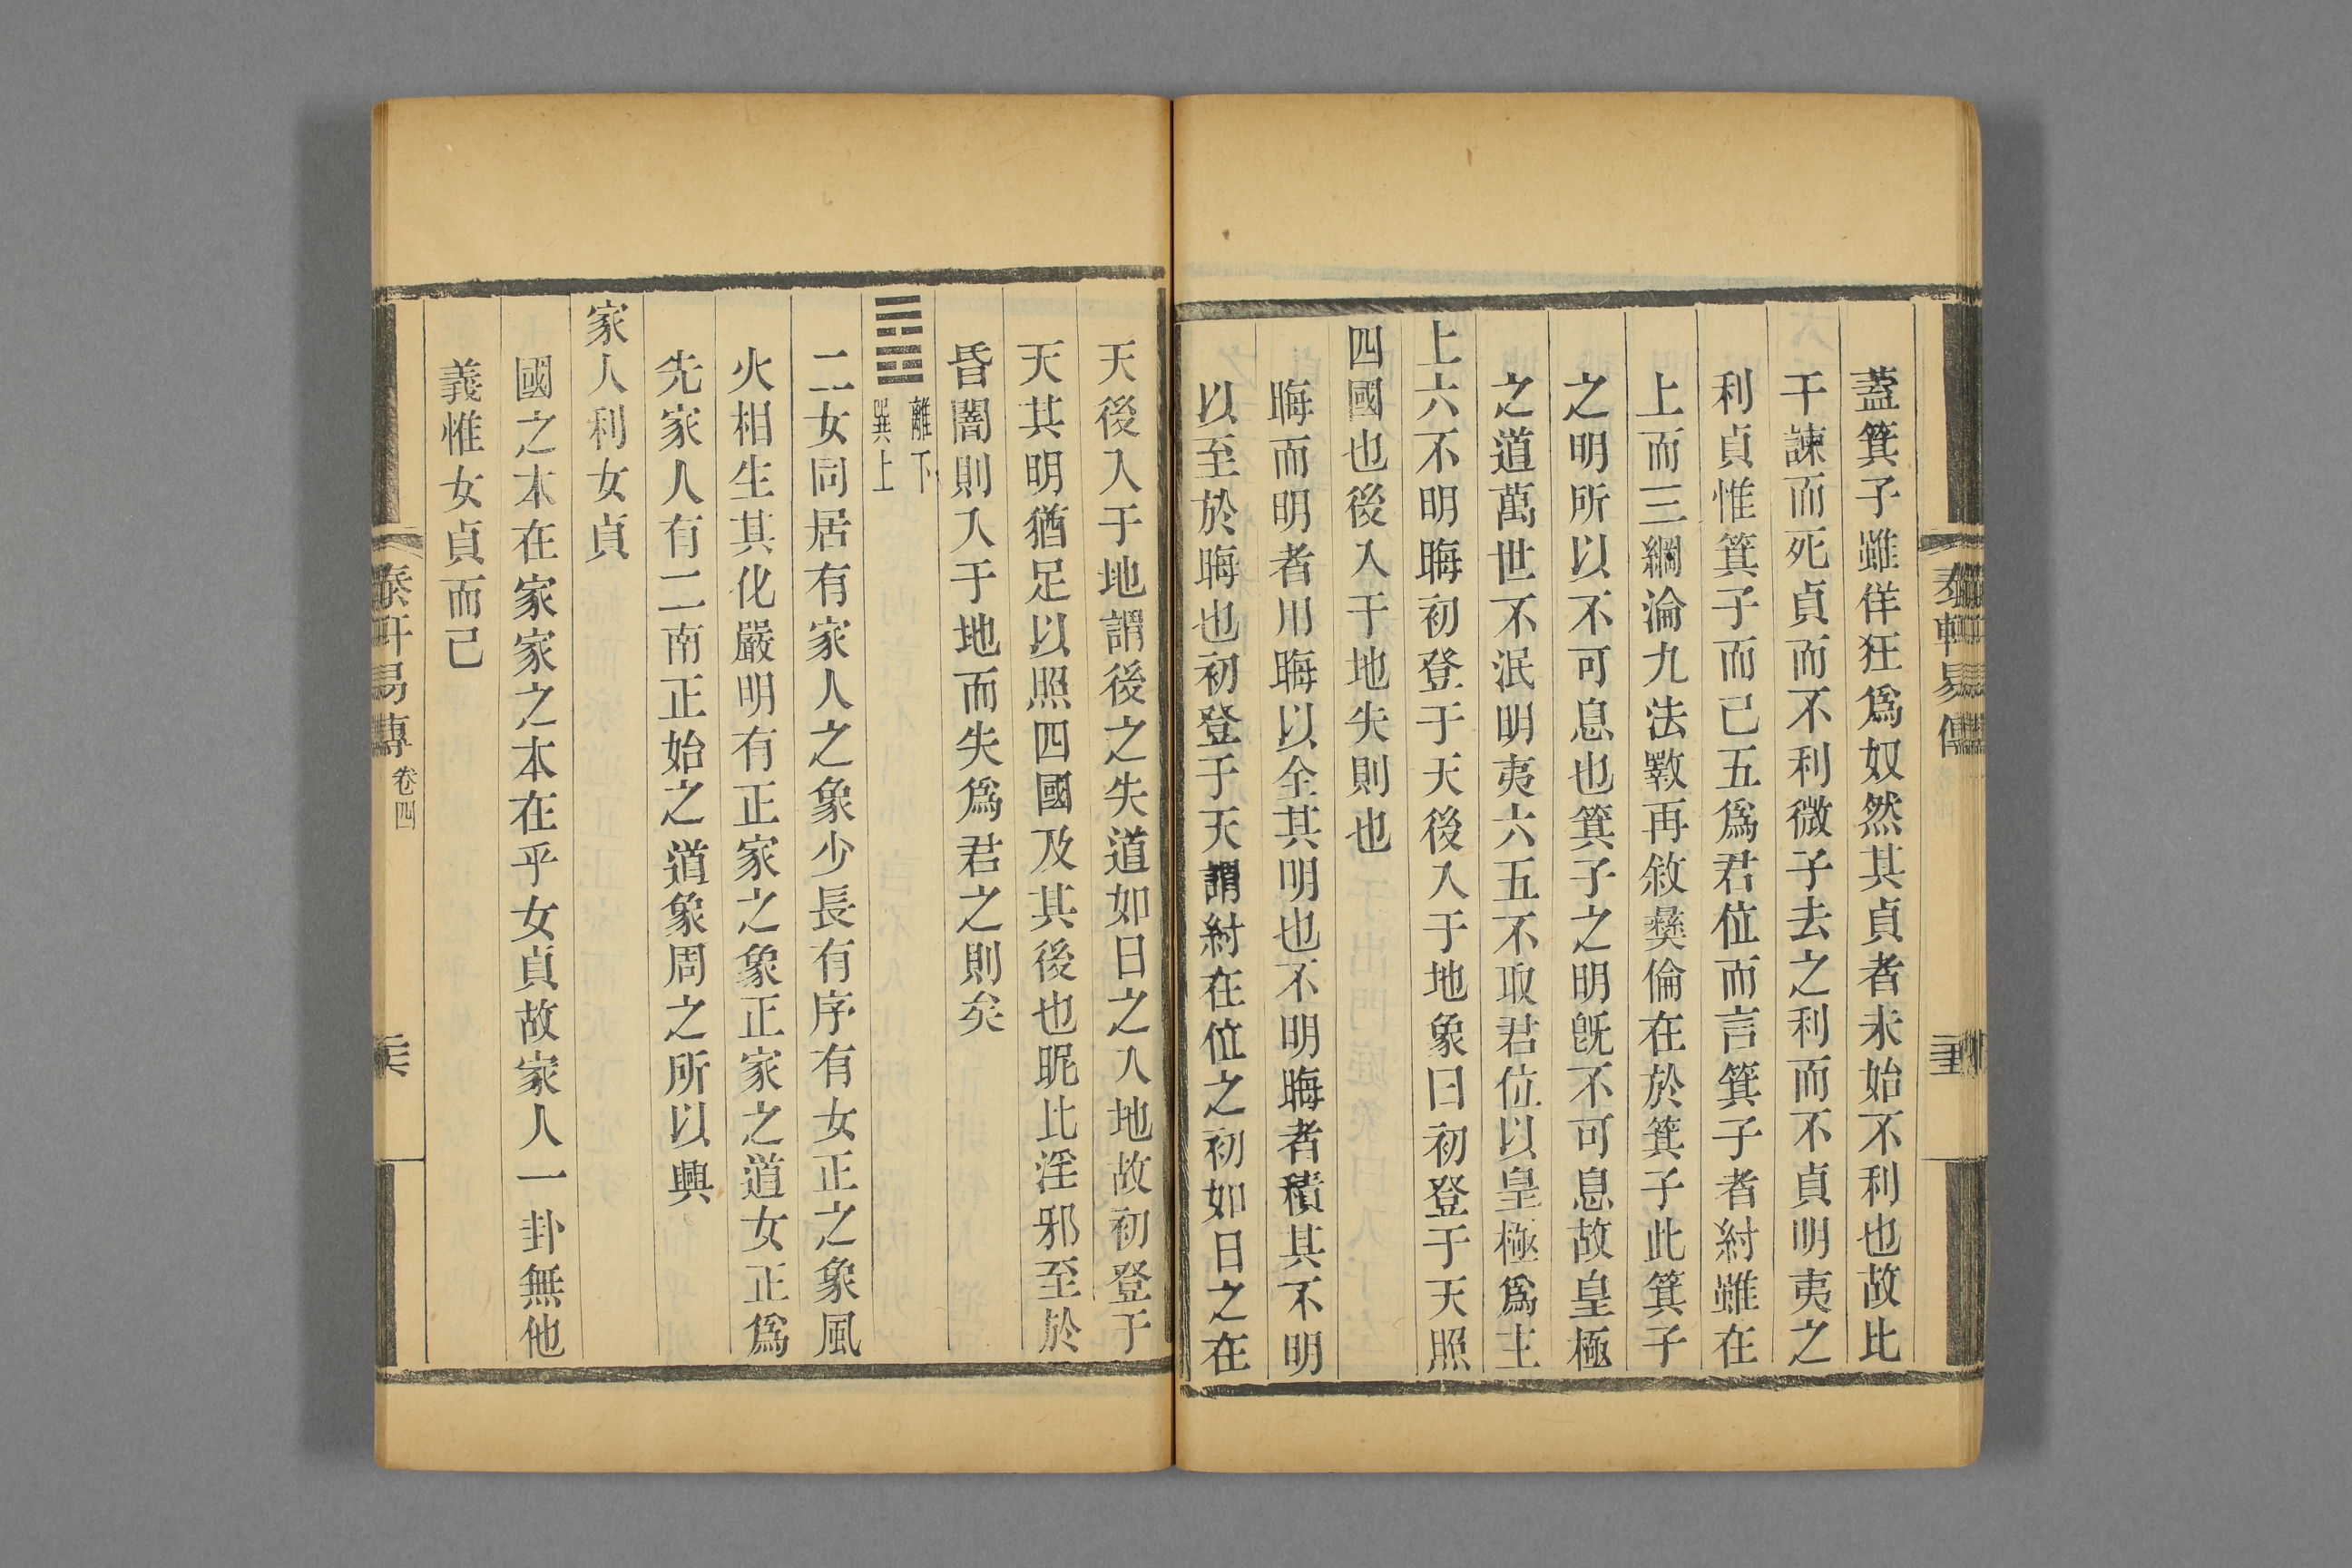 蓋箕子雖佯狂爲奴然其貞者未始不利也故比
干諫而死貞而不利微子去之利而不貞明夷之
利貞惟箕子而已五爲君位而言箕子者紂雖在
上而三綱淪九法斁再敘彝倫在於箕子此箕子
之明所以不可息也箕子之明旣不可息故皇極
之道萬世不泯明夷六五不取君位以皇極爲主
上六不明晦初登于天後入于地象曰初登于天照
四國也後入于地失則也
晦而明者用晦以全其明也不明晦者積其不明
以至於晦也初登于天謂紂在位之初如日之在
天後入于地謂後之失道如日之入地故初登于
天其明猶足以照四國及其後也昵比淫邪至於
昏闇則入于地而失爲君之則矣
離下
巽上
二女同居有家人之象少長有序有女正之象風
火相生其化嚴明有正家之象正家之道女正爲
先家人有二南正始之道象周之所以興
家人利女貞
國之本在家家之本在乎女貞故家人一卦無他
義惟女貞而已
泰軒易傳 卷四